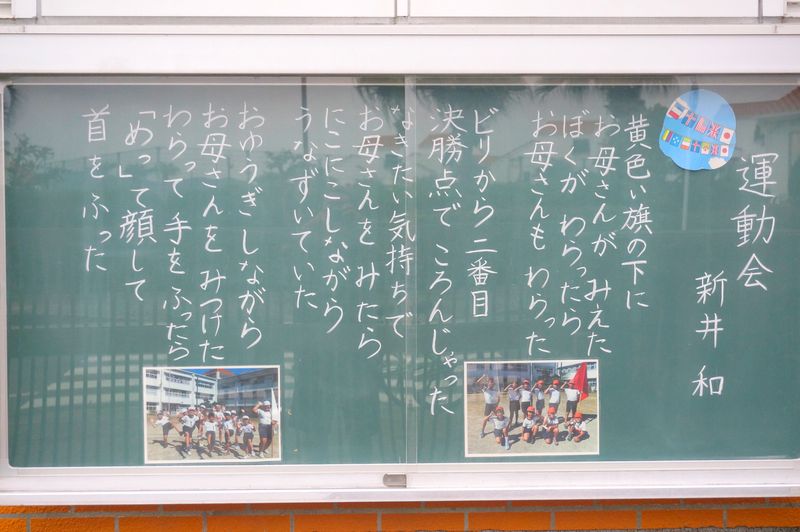 運動会
新井和
黄色い旗の下に
お母さんが みえた
ぼくが わらったら
お母さんも わらった
ビリから 二番目
決勝点で ころんじゃった
なきたい気持ちで
お母さんを みたら
にこにこしながら
うなずいていた
おゆうぎしながら
お母さんを みつけた
わらって 手を ふったら
「めっ」って 顔して
首を ふった